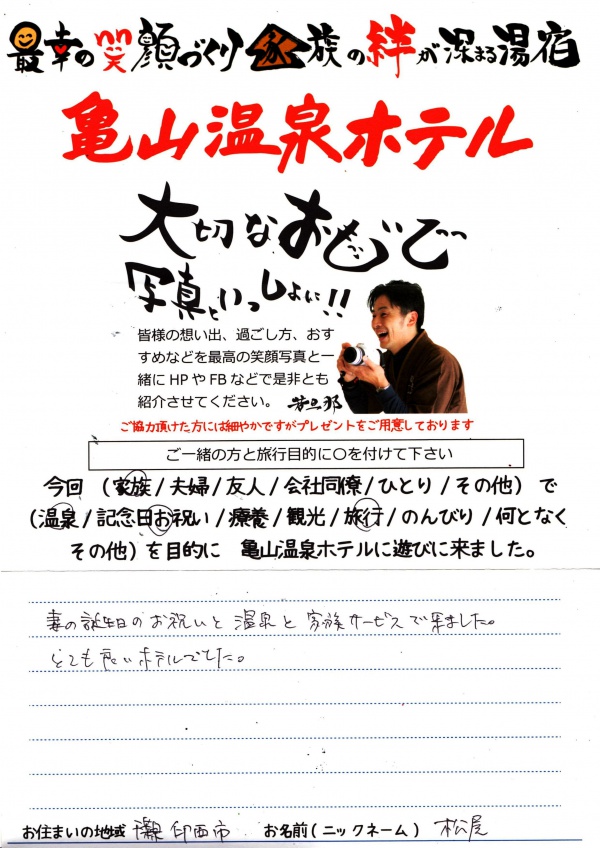 最幸の笑顔づくり 家族の絆が深まる湯宿
亀山温泉ホテル
大切なおもいで
写真といっしょに!!
皆様の想い出、過ごし方、おす
すめなどを最高の笑顔写真と一
緒にHPやFBなどで是非とも
紹介させてください。 若旦那
ご協力頂けた方には細やかですがプレゼントをご用意しております
ご一緒の方と旅行目的に○を付けて下さい
今回 (家族/夫婦/友人/会社同僚/ひとり/その他) で
(温泉/記念日お祝い/療養/観光/旅行/のんびり/何となく
その他) を目的に 亀山温泉ホテルに遊びに来ました。
妻の誕生日のお祝いと温泉と家族サービスで来ました。
とても良いホテルでした。
お住まいの地域 印西市 お名前(ニックネーム) 松尾